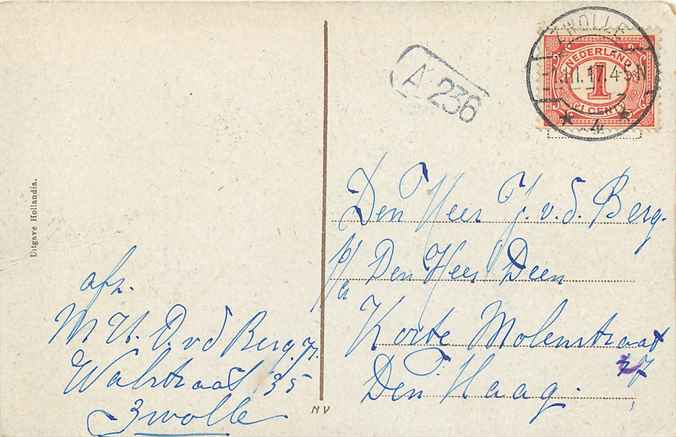 ZWOLLE
4
NEDERLAND
1
CENT
A 236
Uitgave Hollandia.
Den Heer J. v. d. Berg.
p/a Den Heer Deen
Korte Molenstraat
27
Den Haag.
afz.
D. v d Berg
Walstraat 35
Zwolle
NV